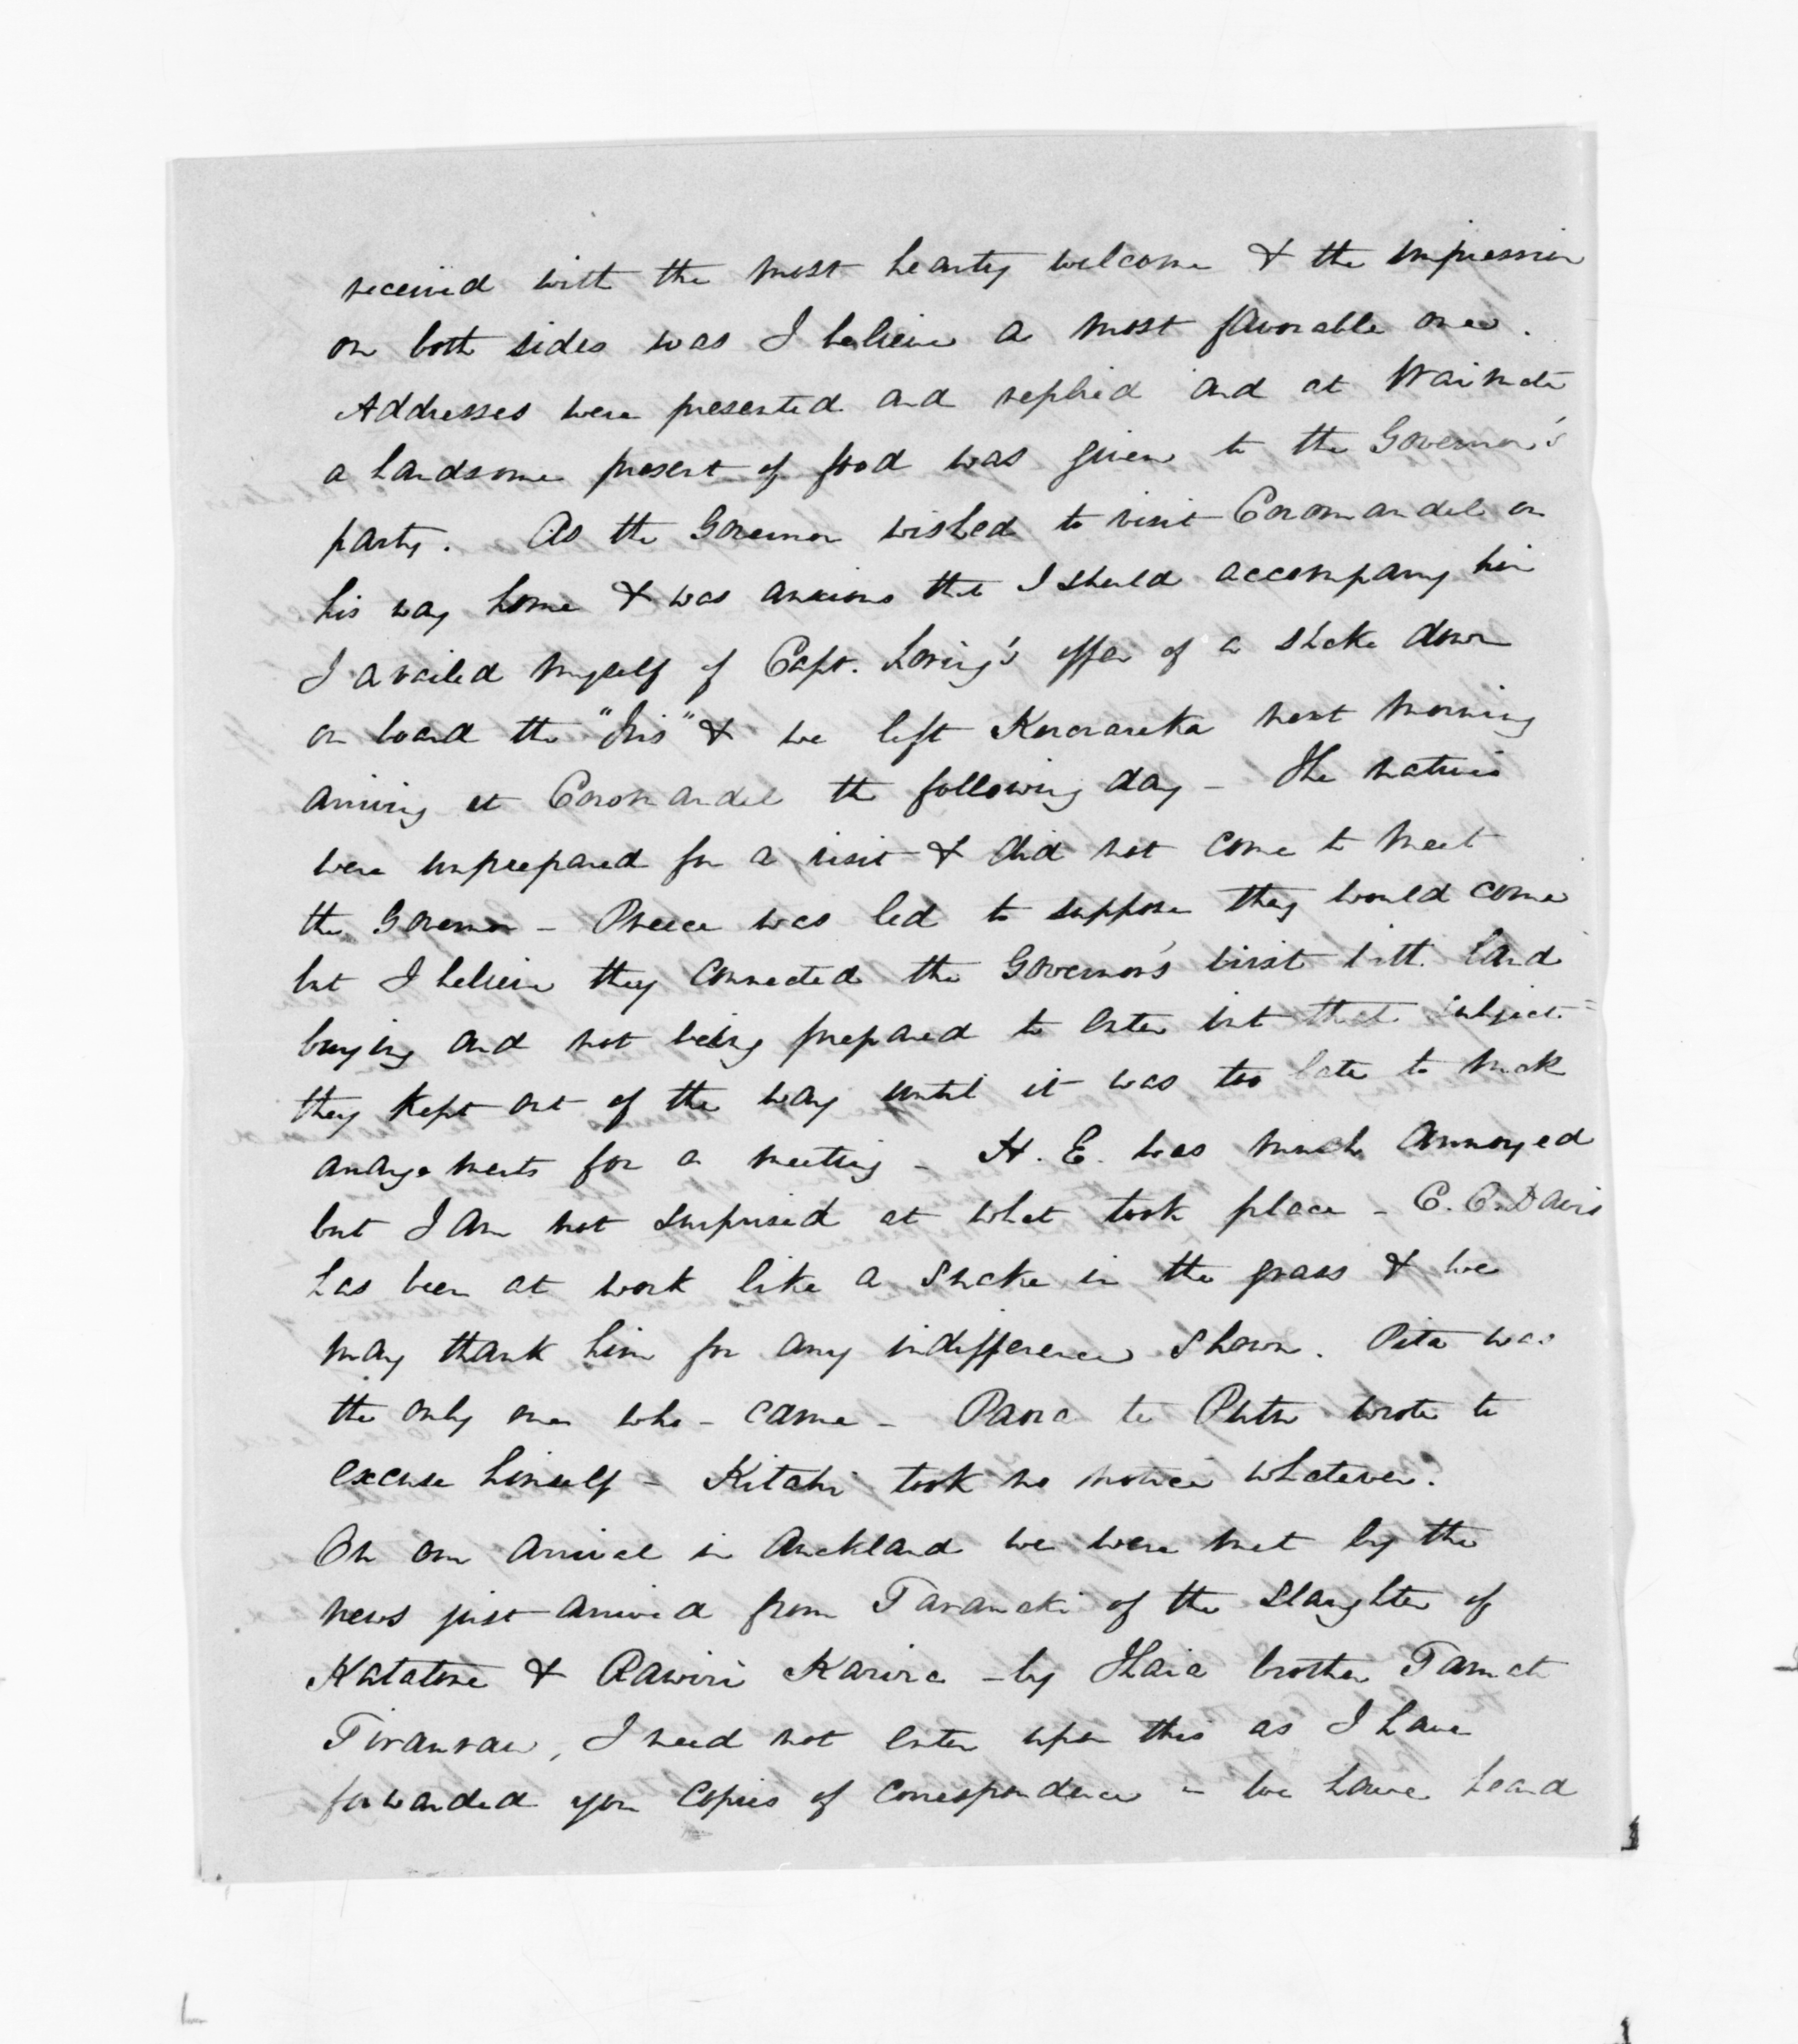 received with the most hearty welcome & the impression
on both sides was I believe a most favorable one.
Addresses were presented and replied and at Waimate
a handsome present of food was given to the Governor's
party. As the Governor wished to visit Coromandel on
his way home & was anxious that I should accompany him
I availed myself of Capt. Loring's offer of a shake down
on board the "Iris" & we left Kororareka next morning
arriving at Coromandel the following day - The natives
were unprepared for a visit & did not come to meet
the Governor - Preece was led to suppose they would come
but I believe they connected the Governor's visit with land
buying and not being prepared to enter into that subject
they kept out of the way until it was too late to make
arrangements for a meeting - H. E. was much annoyed
but I am not surprised at what took place - C. O. Davis
has been at work like a snake in the grass & we
may thank him for any indifference shown. Pita was
the only one who - came - Paora te Putu wrote to
excuse himself - Kitahi took no notice whatever.
On our arrival in Auckland we were met by the
news just arrived from Taranaki of the slaughter of
Katatore & Rawiri Karira - by Ihaia brother Tamati
Tiraurau, I need not enter upon this as I have
forwarded you copies of correspondence - we have heard